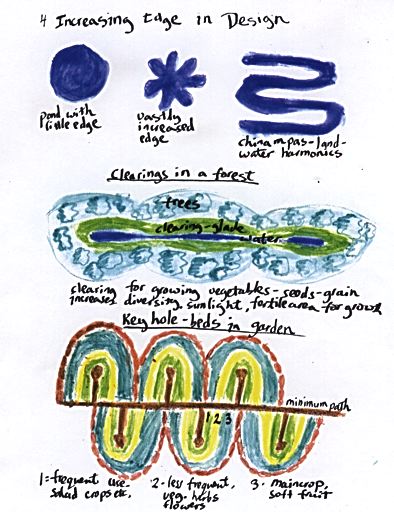 4 Increasing Edge in Design
pond with
little edge
vastly
increased
edge
chinampas-land-
water harmonics
Clearings in a forest
trees
clearing-glade
water
clearing for growing vegetables-seeds-grain
increases diversity, sunlight, fertile area for growth
Keyhole-beds in garden
minimum path
1 2 3
1=frequent use-
salad crops etc.
2-less frequent,
veg. herbs
flowers
3. maincrop,
soft fruit